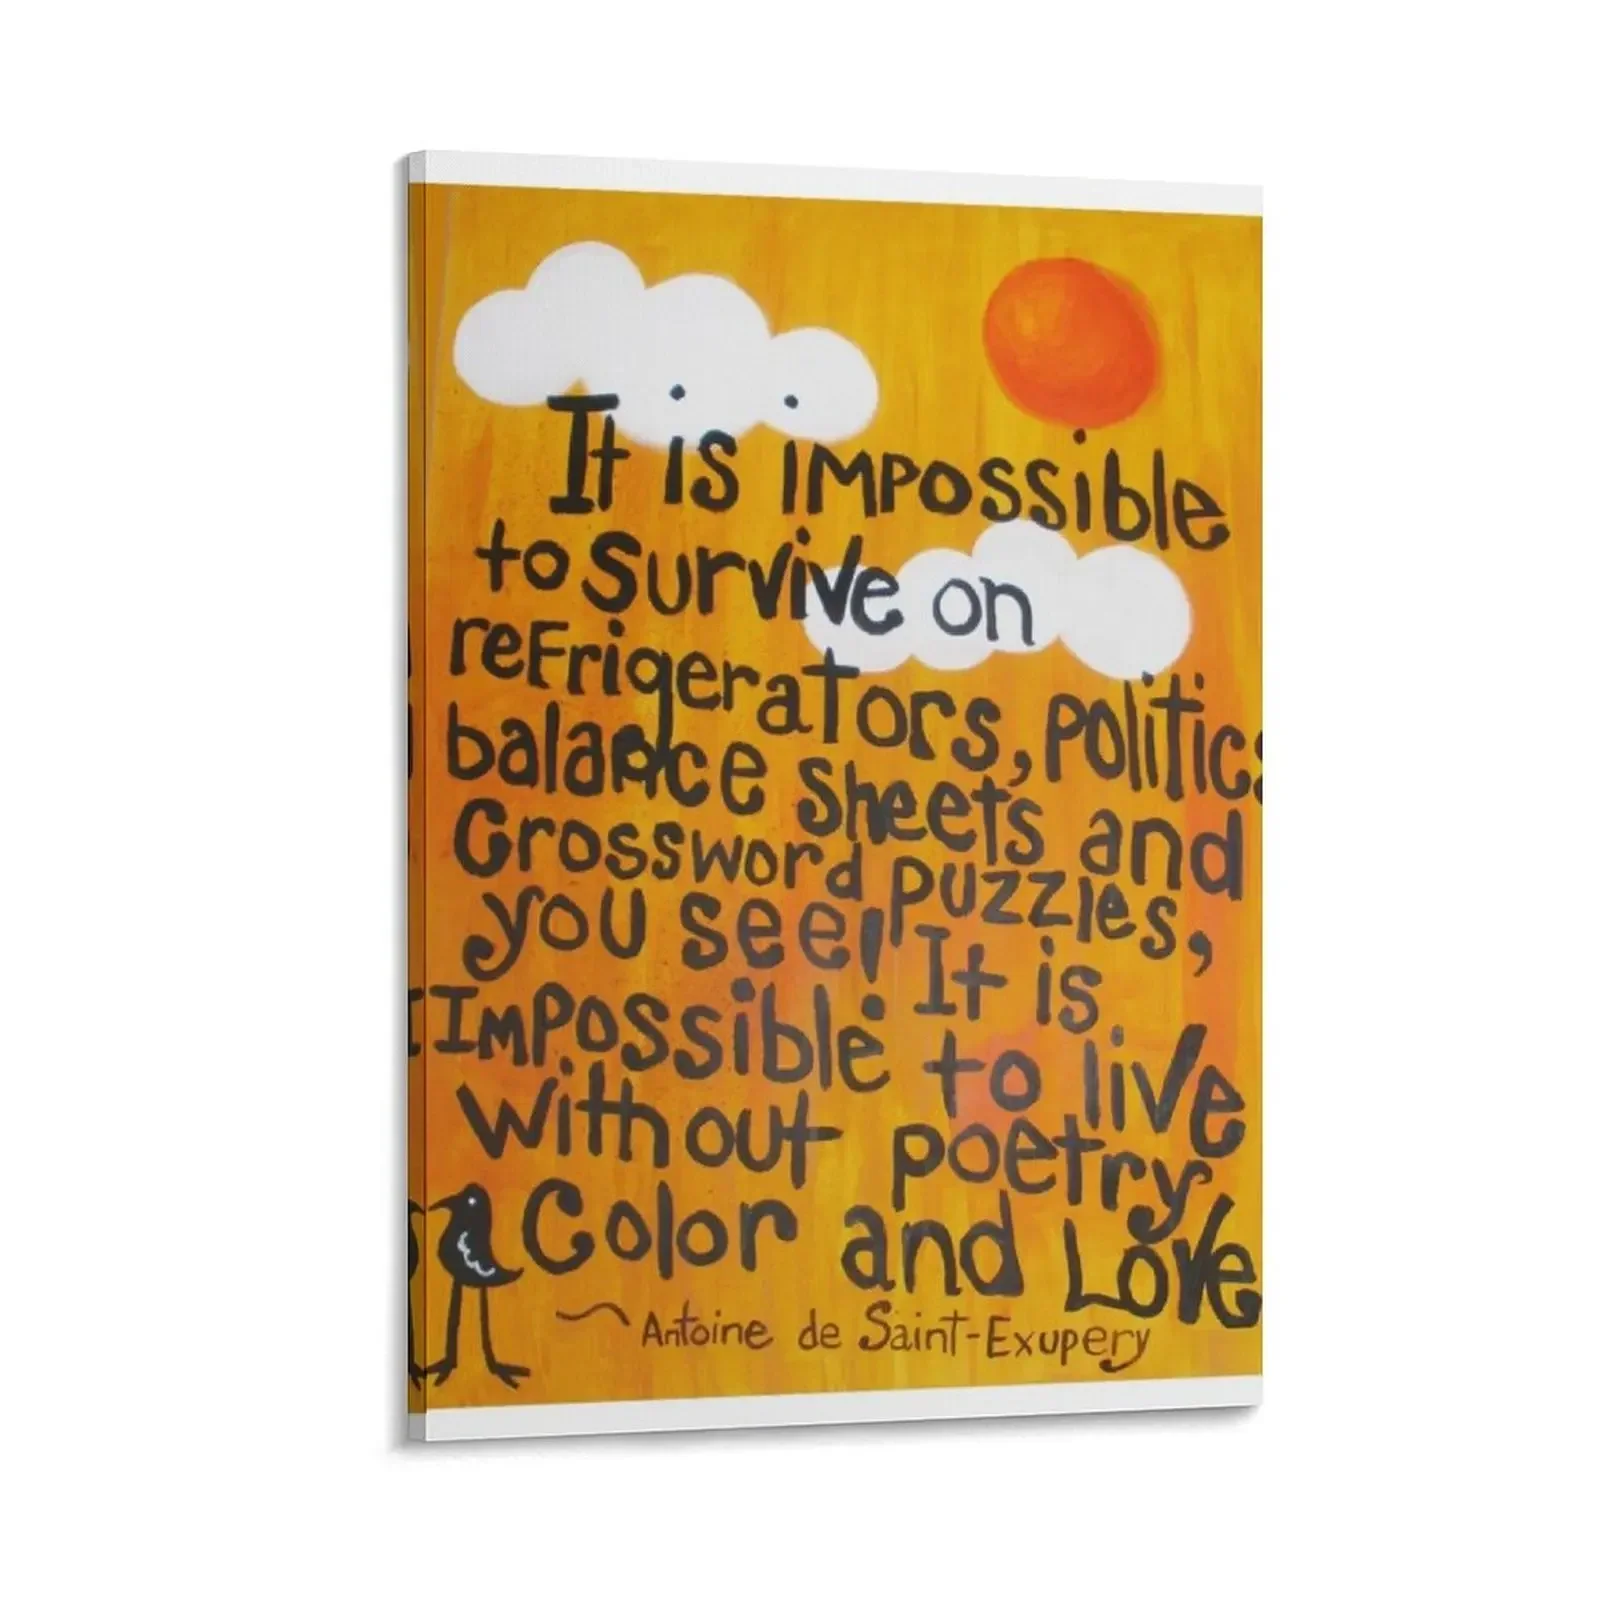 It is impossible
to survive on
refrigerators, politics
balance sheets and
Crossword puzzles,
you see! It is
Impossible to live
Without poetry
Color and Love
~Antoine de Saint-Exupery